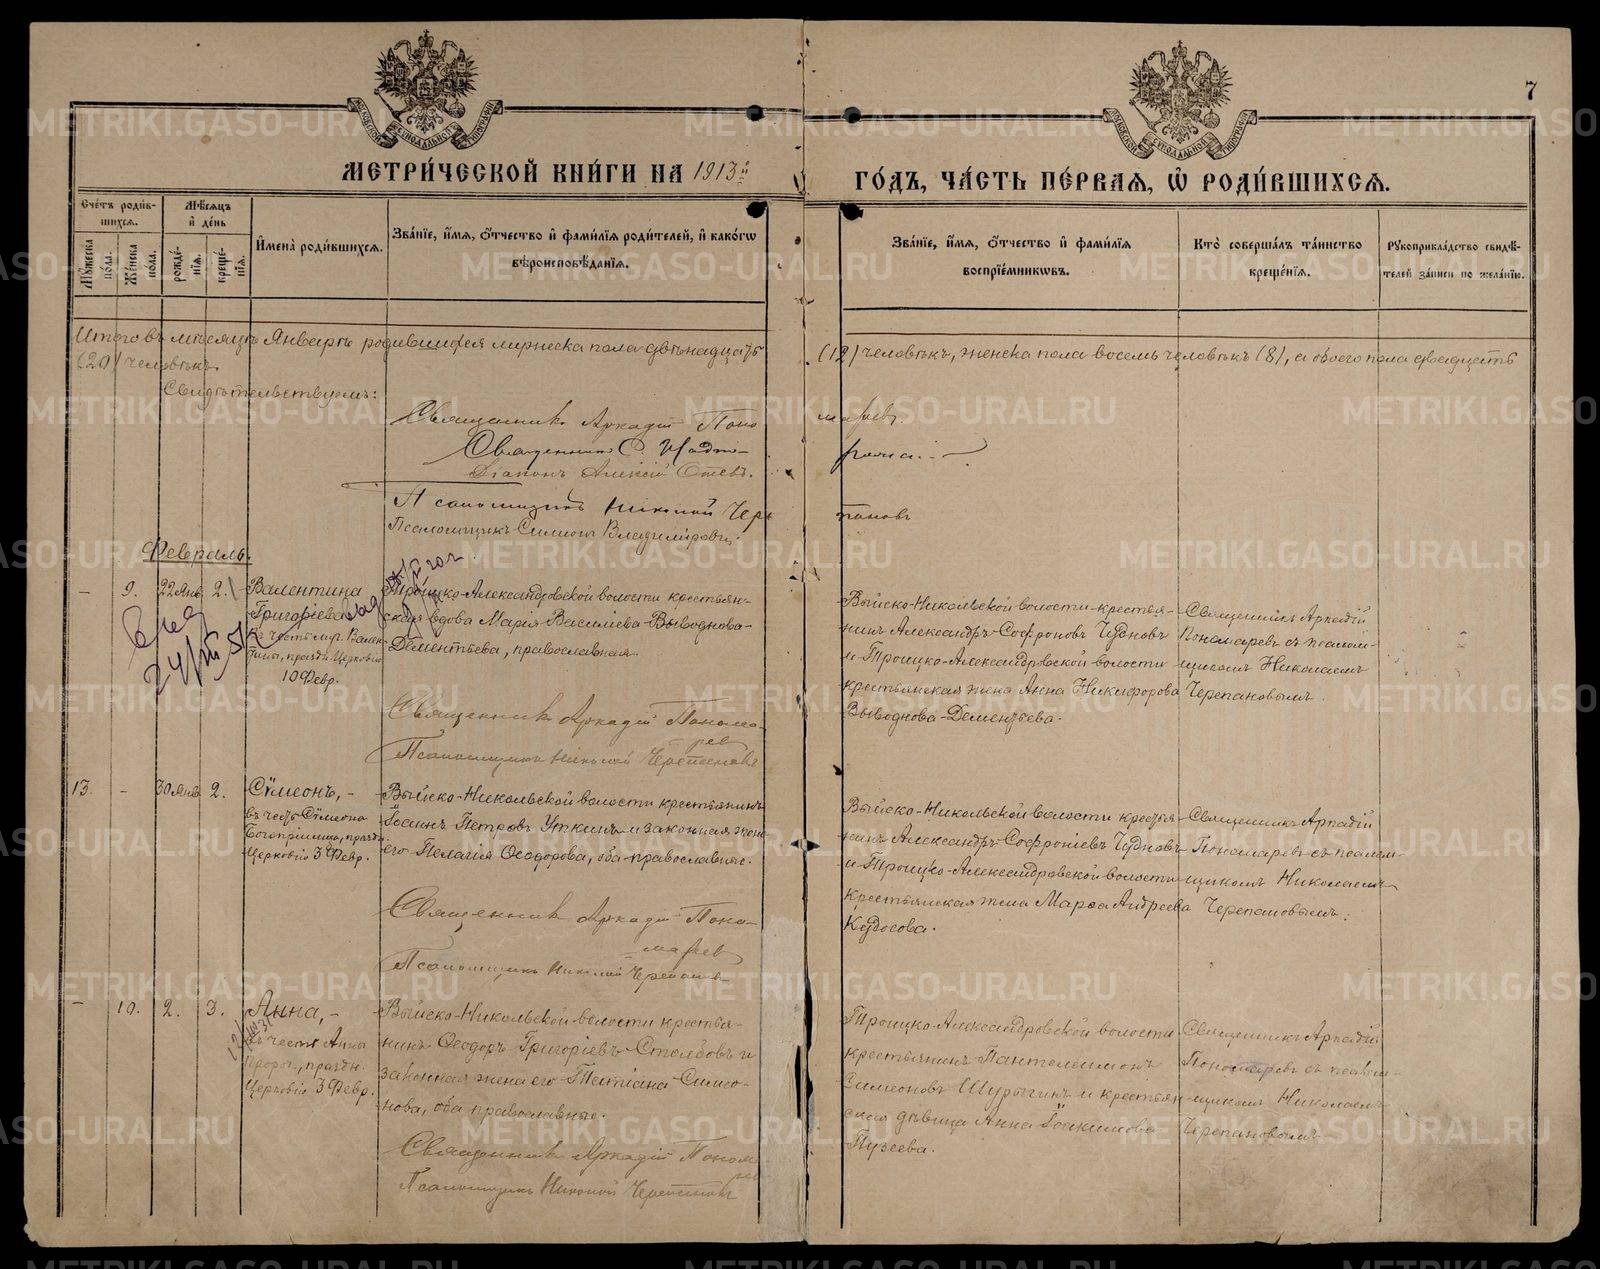 7
МЕТРИЧЕСКОЙ КНИГИ НА 1913й
ГОДЪ, ЧАСТЬ ПЕРВАЯ, Ѡ РОДИВШИХСЯ.
Счетъ родив-
шихся.
Мужеска пола.
Женска пола.
Мѣсяцъ и день
рожде-
нія.
креще-
нія.
Имена родившихся.
Званіе, имя, отчество и фамилія родителей, и какогѡ
вѣроисповѣданія.
Званіе, имя, отчество и фамилія
воспріемникѡвъ.
Кто совершалъ таинство
крещенія.
Рукоприкладство свидѣ-
телей записи по желанію.
Итого въ мѣсяцѣ Январѣ родившихся мужеска пола двѣнадцать (12) человѣкъ, женска пола восемь человѣкъ (8), а обоего пола двадцать
(20) человѣкъ.
Свидѣтельствуемъ:
Священникъ Аркадій Пономаревъ
Священникъ С.
Діаконъ Алексій
Псаломщикъ Николай Черепановъ
Псаломщикъ Симеонъ Владиміровъ.
Февраль.
- 9. 22 Янв 2.
Валентина
Григоріева
въ честь мц. Вален-
тины, празд. Церковію
10 Февр.
Троицко-Александровской волости крестьян-
ская вдова Марія Василіева Выводнова-
Дементьева, православная.
Священникъ Аркадій Понома-
ревъ
Псаломщикъ Николай Черепановъ
Выйско-Никольской волости крестья-
нинъ Александръ Софроновъ Чудновъ
и Троицко-Александровской волости
крестьянская жена Анна Никифорова
Выводнова-Дементьева.
Священникъ Аркадій
Пономаревъ съ псалом-
щикомъ Николаемъ
Черепановымъ.
13. - 30 Янв 2.
Сѵмеонъ, -
въ честь Сѵмеона
Богопріимца, празд.
Церковію 3 Февр.
Выйско-Никольской волости крестьянинъ
Іоаннъ Петровъ Уткинъ и законная жена
его Пелагія Ѳеодорова, оба православные.
Священникъ Аркадій Поно-
маревъ
Псаломщикъ Николай Черепановъ
Выйско-Никольской волости крестья-
нинъ Александръ Софроніевъ Чудновъ
и Троицко-Александровской волости
крестьянская жена Марѳа Андреева
Священникъ Аркадій
Пономаревъ съ псалом-
щикомъ Николаемъ
Черепановымъ.
- 10. 2. 3.
Анна, -
въ честь Анны
Прор., праздн.
Церковію 3 Февр.
Выйско-Никольской волости крестья-
нинъ Ѳеодоръ Григоріевъ Столбовъ и
законная жена его Татіана Симео-
нова, оба православные.
Священникъ Аркадій Понома
Псаломщикъ Николай Черепановъ
Троицко-Александровской волости
крестьянинъ Пантелеимонъ
Симеоновъ Шурыгинъ и крестьян-
ская дѣвица Анна Іоакимова
Пузеева.
Священникъ Аркадій
Пономаревъ съ псалом-
щикомъ Николаемъ
Черепановымъ
METRIKI.GASO-URAL.RU